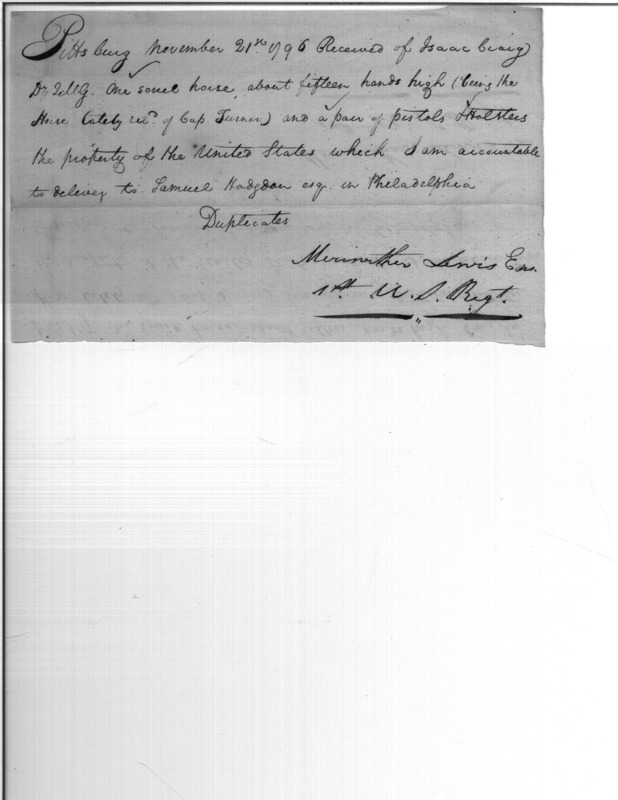 Pittsburg November 21st 1796 Received of Isaac Craig
D. Q. M. G. One sorrel horse, about fifteen hands high (being the
Horse lately recd. of Cap. Turner) and a pair of pistols & Holsters
the property of the United States which I am accountable
to deliver to Samuel Hodgdon esq. in Philadelphia
Duplicates
Meriwether Lewis Ens.
1st. U. S. Regt.